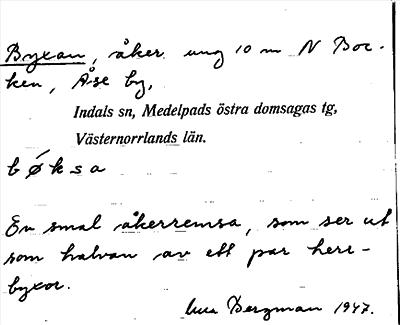 Byxan, åker ung 10 m N Boc-
ken, Åse by,
Indals sn, Medelpads östra domsagas tg,
Västernorrlands län.
bǿksa
En smal åkerremsa, som ser ut
som halvan av ett par herr-
byxor.
Bergman 1947.